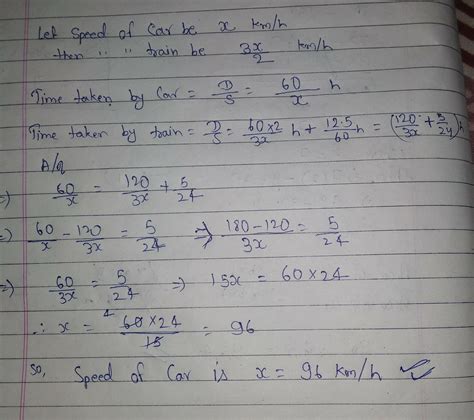 Let Speed of Car be x km/h
then " " train be 3x/2 km/h
Time taken by Car = D/S = 60/x h
Time taken by train = D/S = 60×2/3x h + 12.5/60 h = (120/3x + 5/24) h
A/q
⇒ 60/x = 120/3x + 5/24
⇒ 60/x - 120/3x = 5/24 ⇒ 180-120/3x = 5/24
⇒ 60/3x = 5/24 ⇒ 15x = 60×24
∴ x = 4 60×24/15 = 96
So, Speed of Car is x = 96 km/h